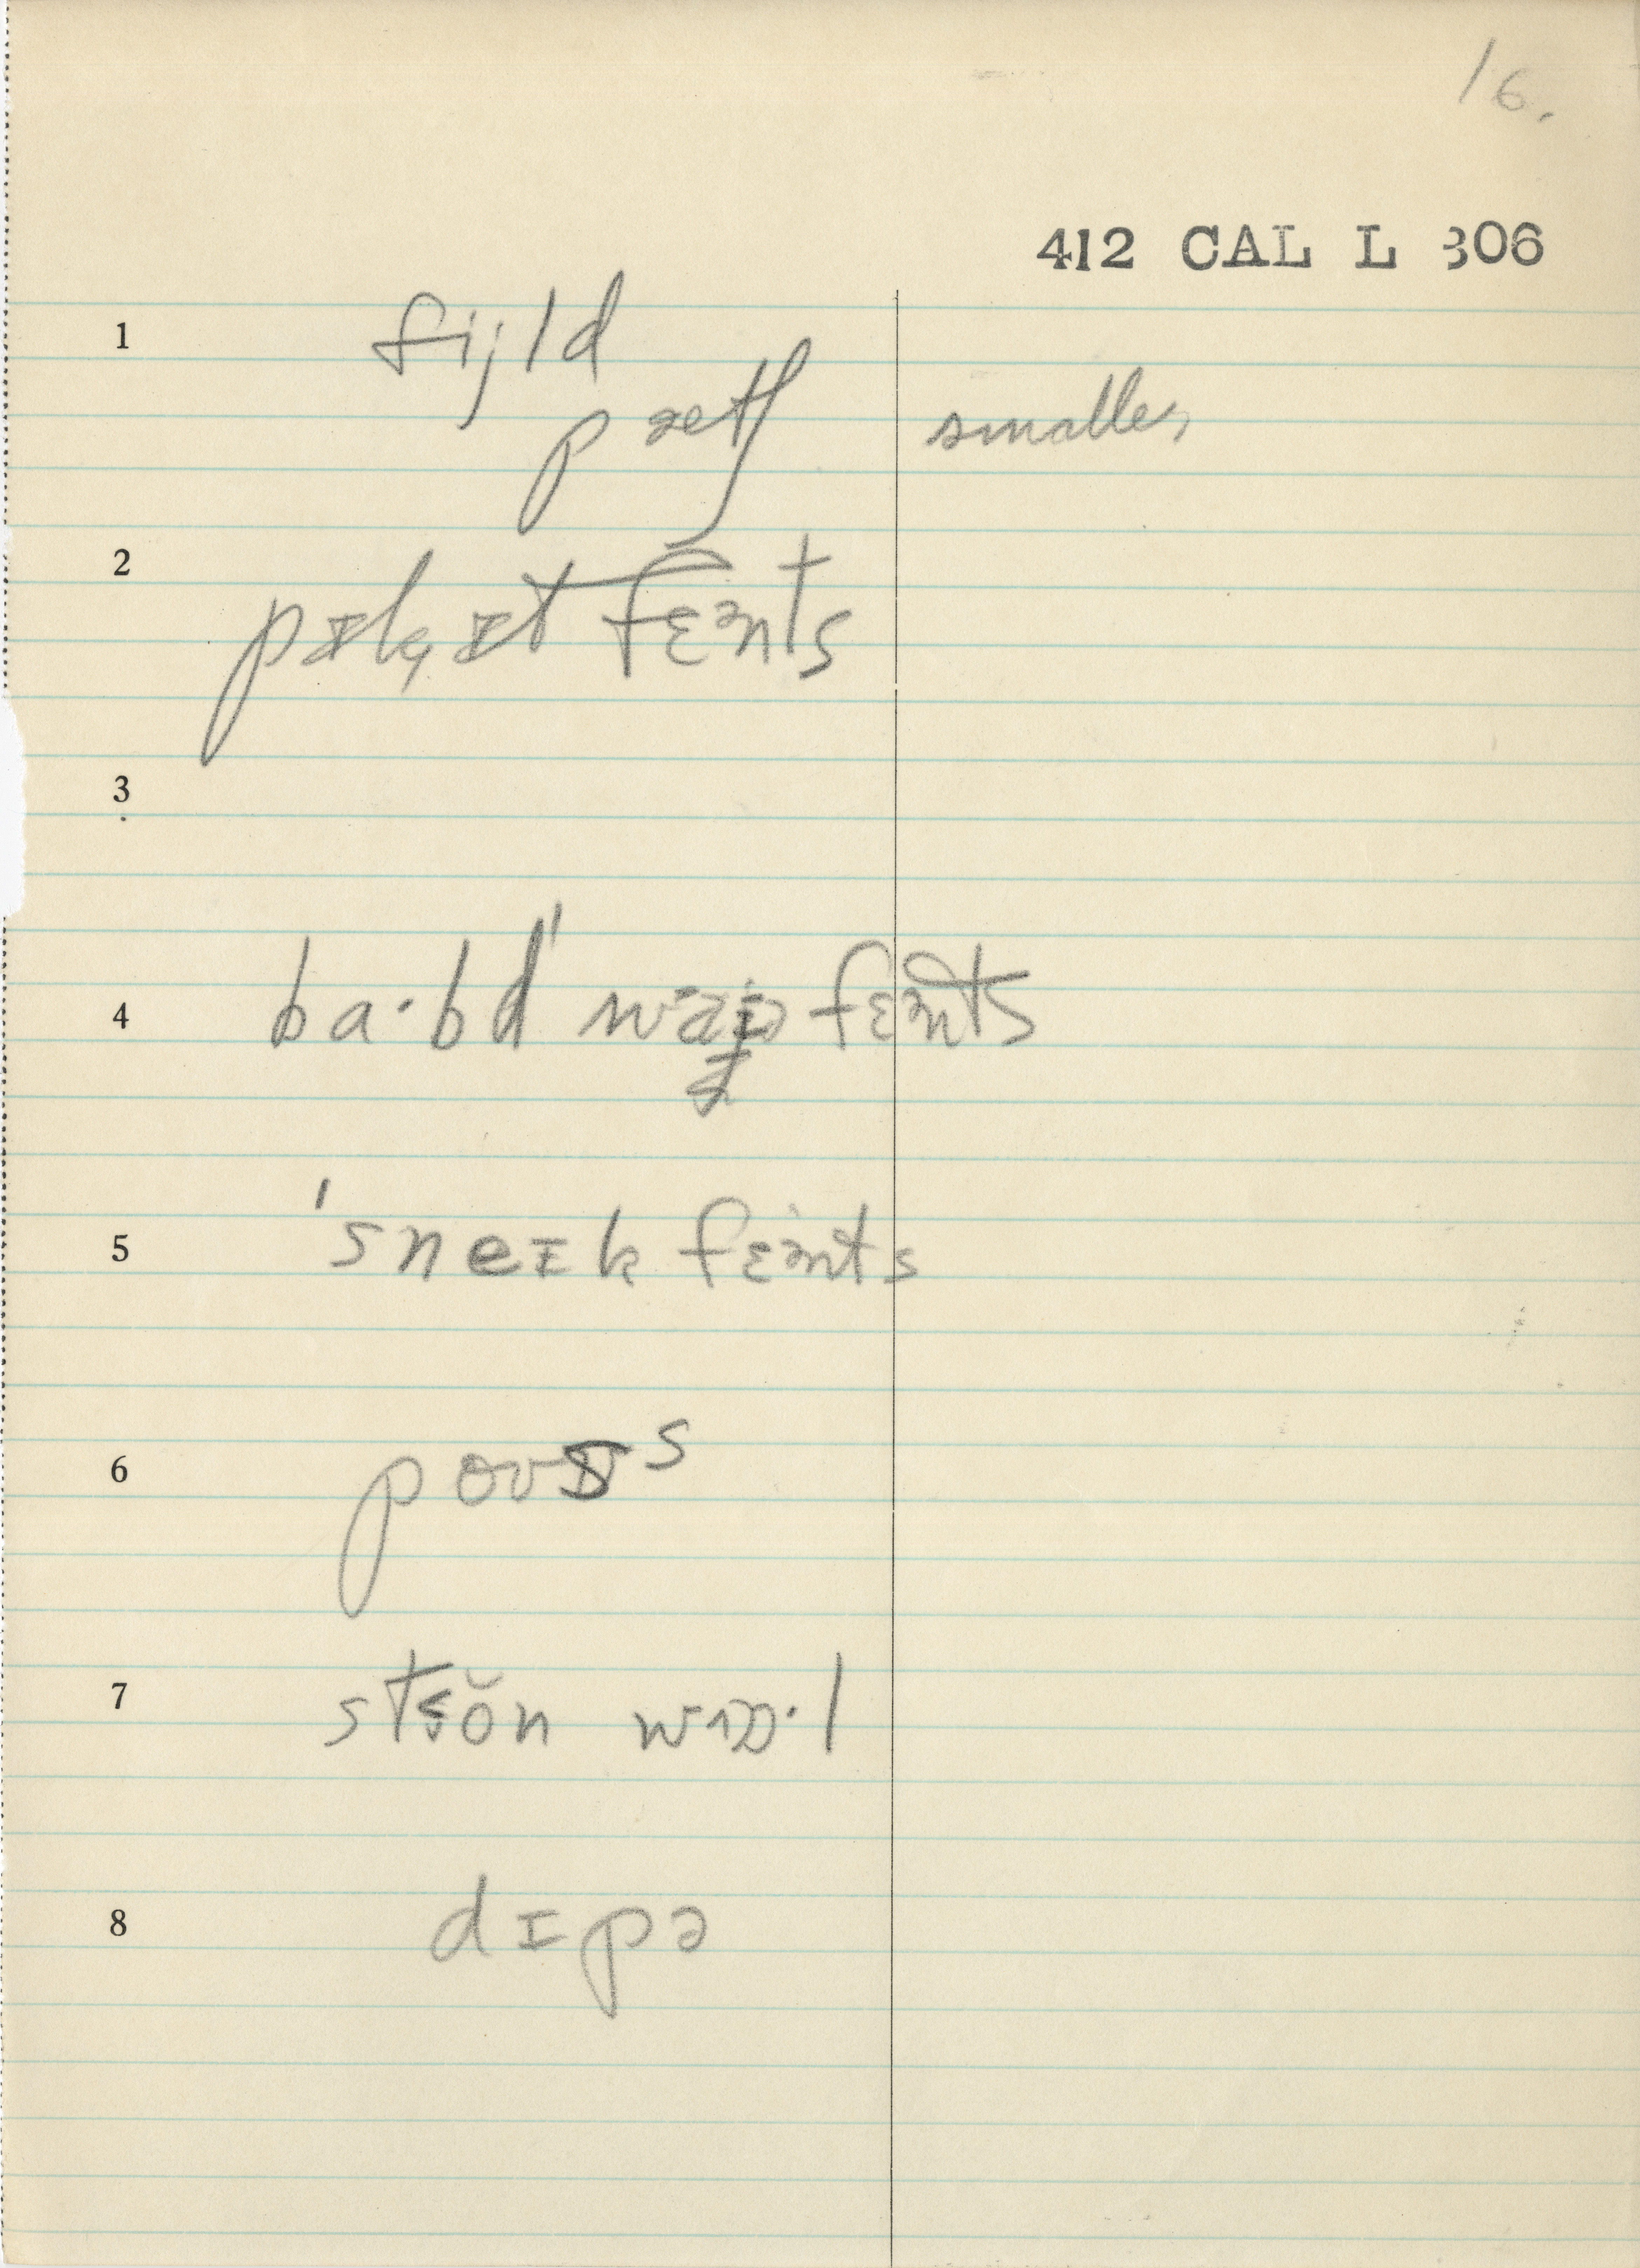 16.
412 CAL L 306
1 fijld
pætʃ smaller
2 pɪkɪt fɛənts
3
4 ba·bd' waɪə fɛənts
5 'sneɪk fɛənts
6 poʊs
7 stŏn wɒ·l
8 dɪpə